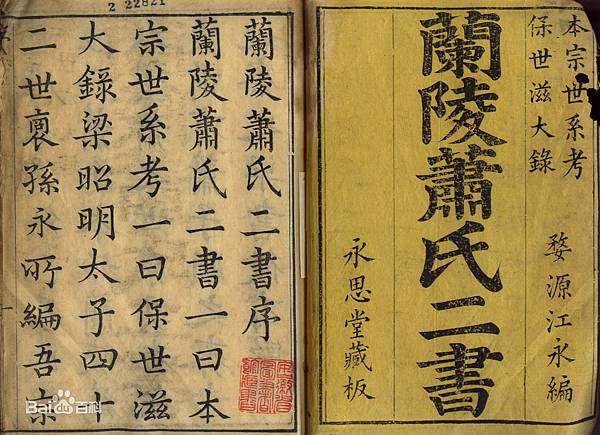 本宗世系考
保世滋大錄
婺源江永編
蘭陵蕭氏二書
永思堂藏板
蘭陵蕭氏二書序
蘭陵蕭氏二書一曰本
宗世系考一曰保世滋
大錄梁昭明太子四十
二世裔孫永所編吾宗
2 22821
Bai百科